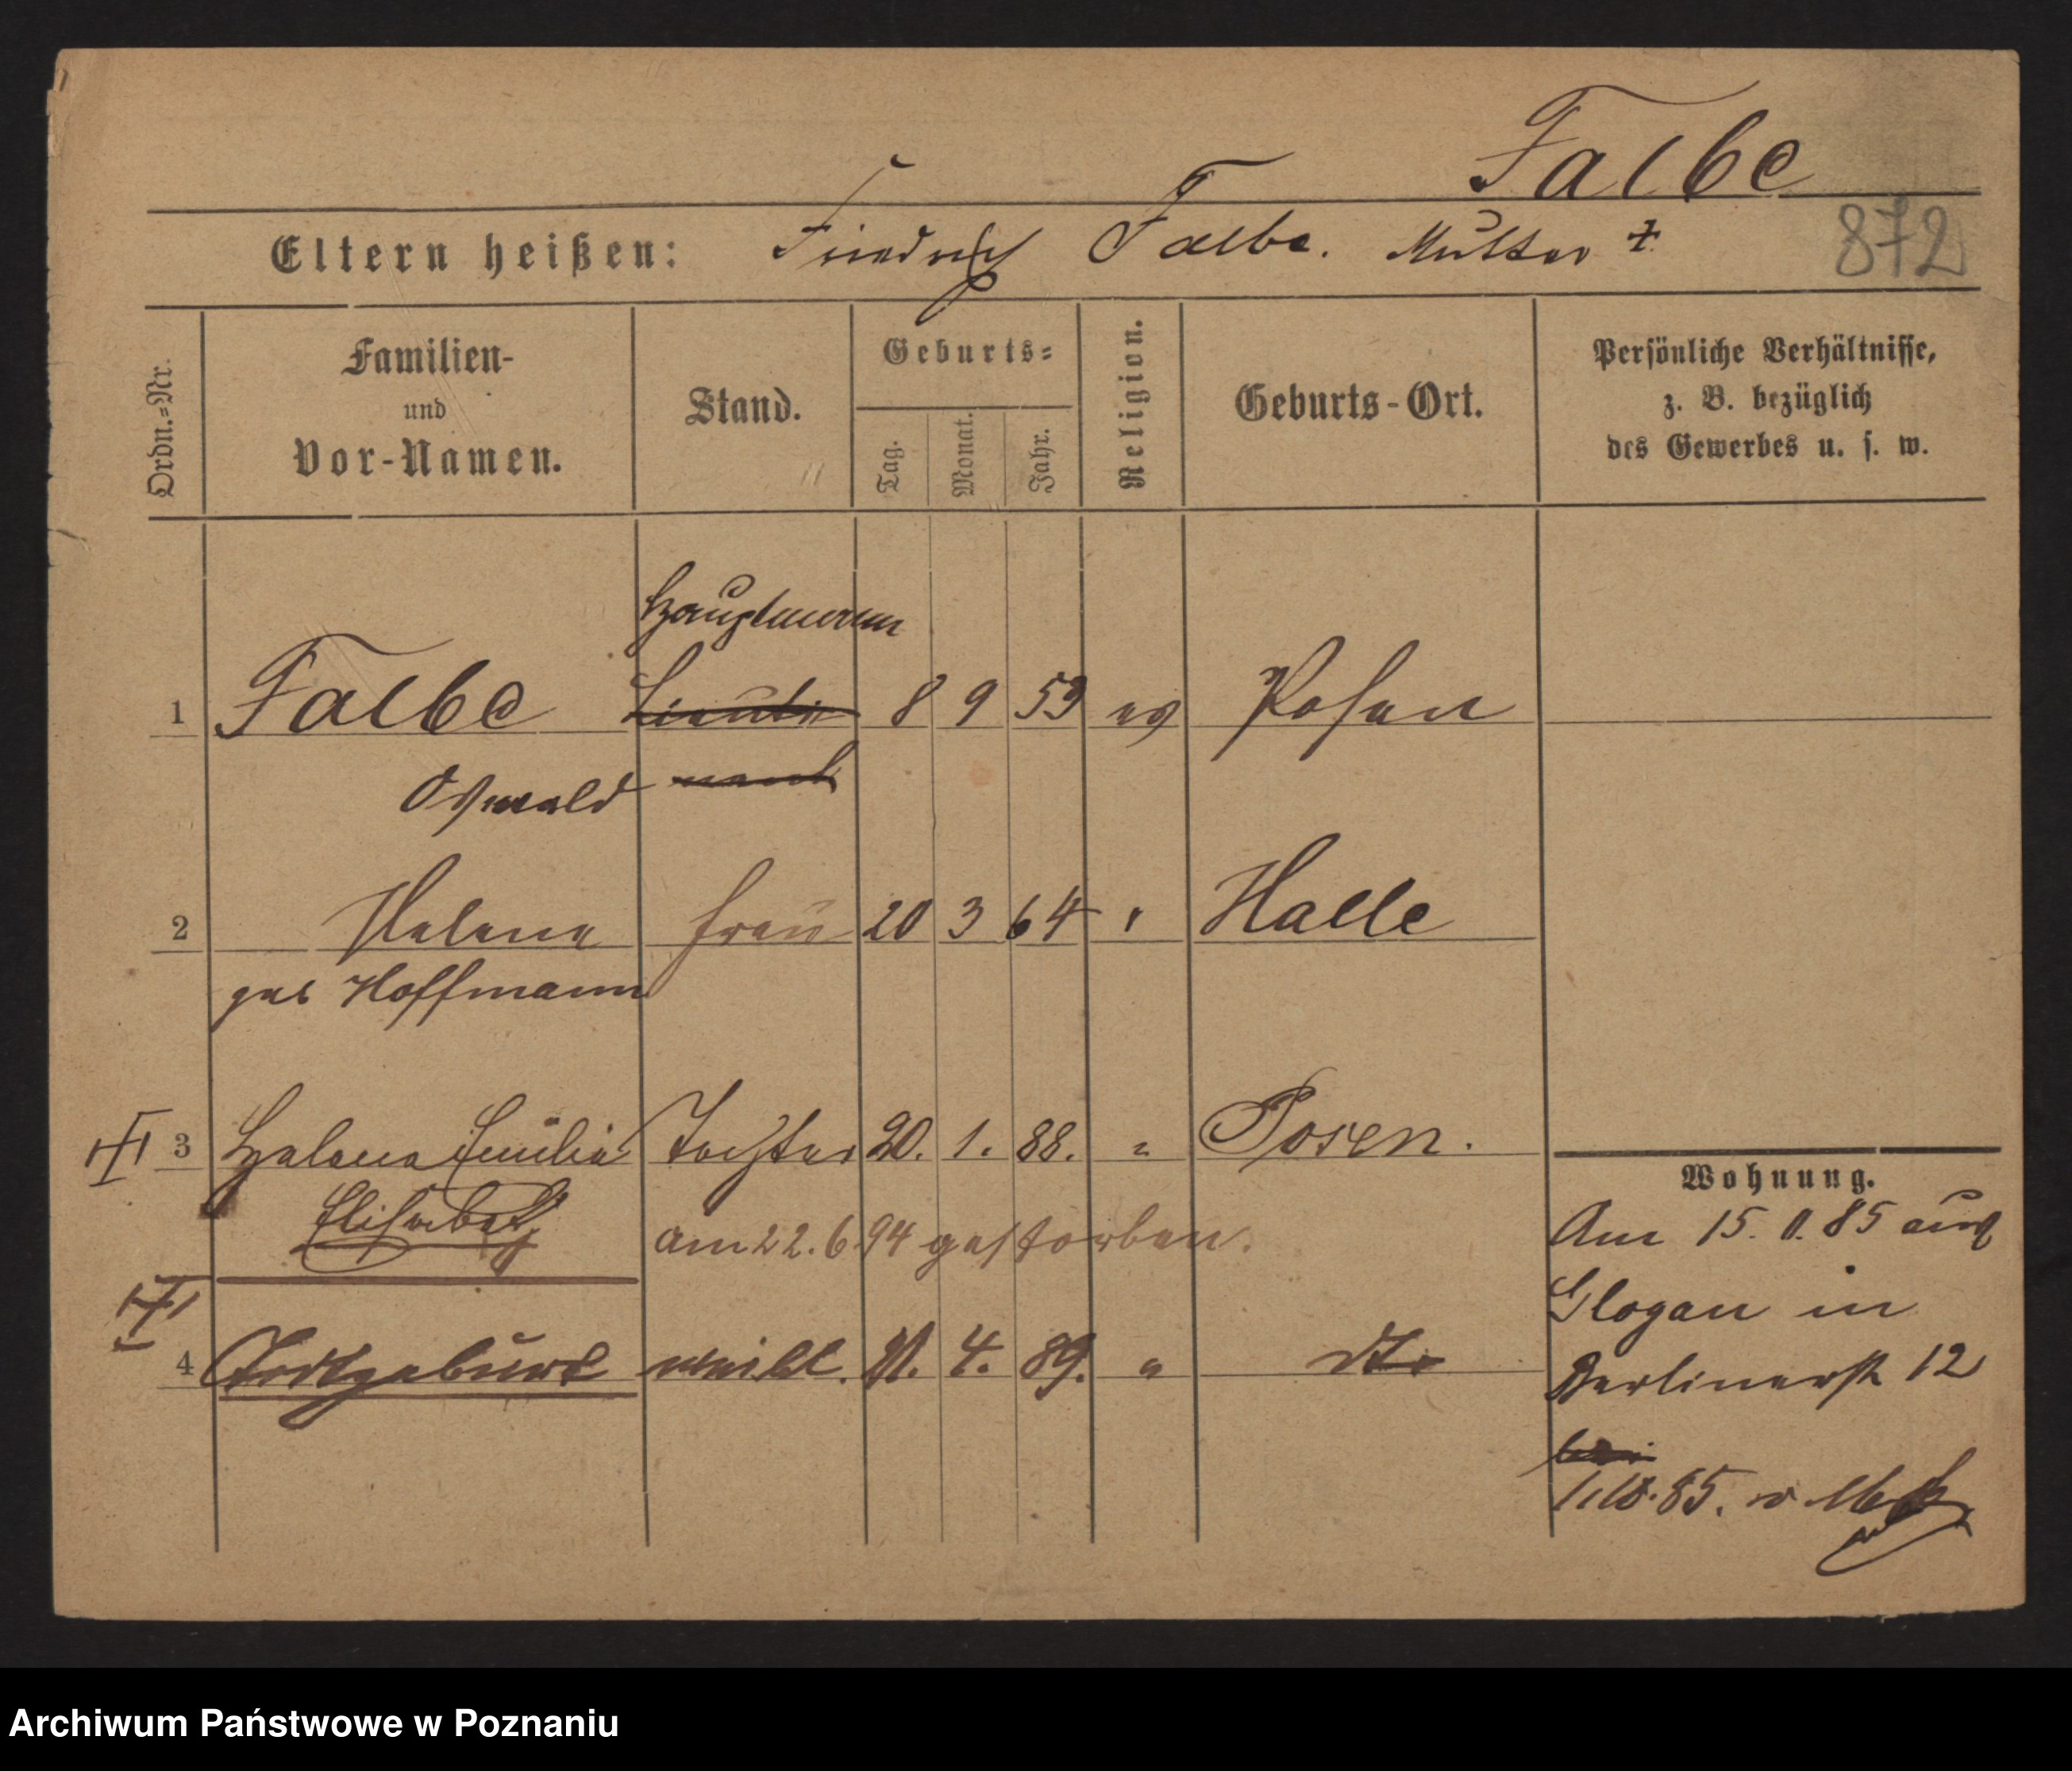 Falbe
Eltern heißen: Friedrich Falbe. Mutter †.
872
Ordn.=Nr.
Familien-
und
Vor-Namen.
Stand.
Geburts=
Tag.
Monat.
Jahr.
Religion.
Geburts-Ort.
Persönliche Verhältnisse,
z. B. bezüglich
des Gewerbes u. s. w.
Hauptmann
1 Falbe Lieute 8 9 59 ev Posen
Oswald nant
2 Helene Frau 20 3 64 " Halle
geb Hoffmann
3 Helene Emilie Tochter 20. 1. 88. " Posen.
Elisabeth am 22.6.94 gestorben.
4 Todtgeburt weibl. 4. 89. " dto
Wohnung.
Am 15. 85 aus
Glogau in
Berlinerstr 12
bei
85.
Archiwum Państwowe w Poznaniu